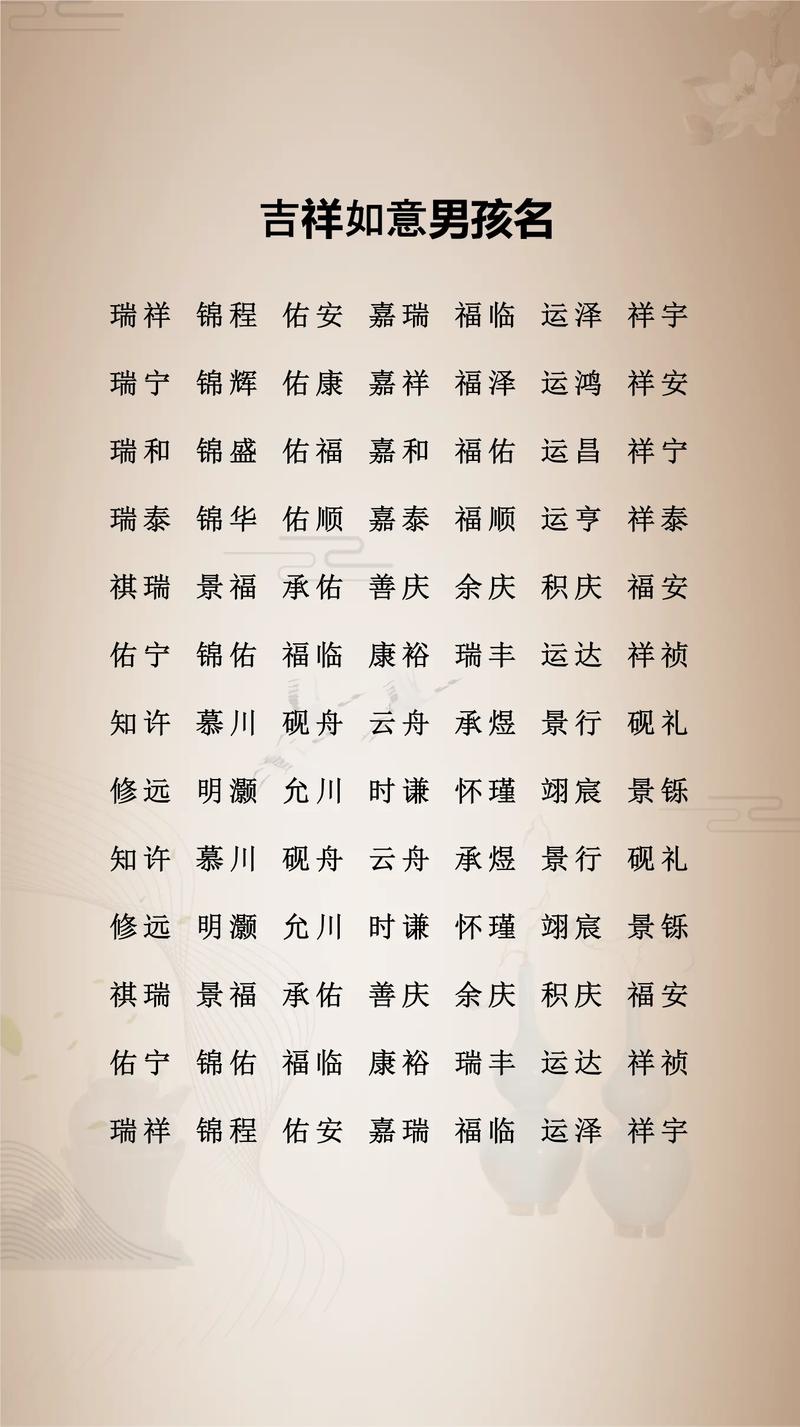 吉祥如意男孩名
瑞祥 锦程 佑安 嘉瑞 福临 运泽 祥宇
瑞宁 锦辉 佑康 嘉祥 福泽 运鸿 祥安
瑞和 锦盛 佑福 嘉和 福佑 运昌 祥宁
瑞泰 锦华 佑顺 嘉泰 福顺 运亨 祥泰
祺瑞 景福 承佑 善庆 余庆 积庆 福安
佑宁 锦佑 福临 康裕 瑞丰 运达 祥祯
知许 慕川 砚舟 云舟 承煜 景行 砚礼
修远 明灏 允川 时谦 怀瑾 翊宸 景铄
知许 慕川 砚舟 云舟 承煜 景行 砚礼
修远 明灏 允川 时谦 怀瑾 翊宸 景铄
祺瑞 景福 承佑 善庆 余庆 积庆 福安
佑宁 锦佑 福临 康裕 瑞丰 运达 祥祯
瑞祥 锦程 佑安 嘉瑞 福临 运泽 祥宇